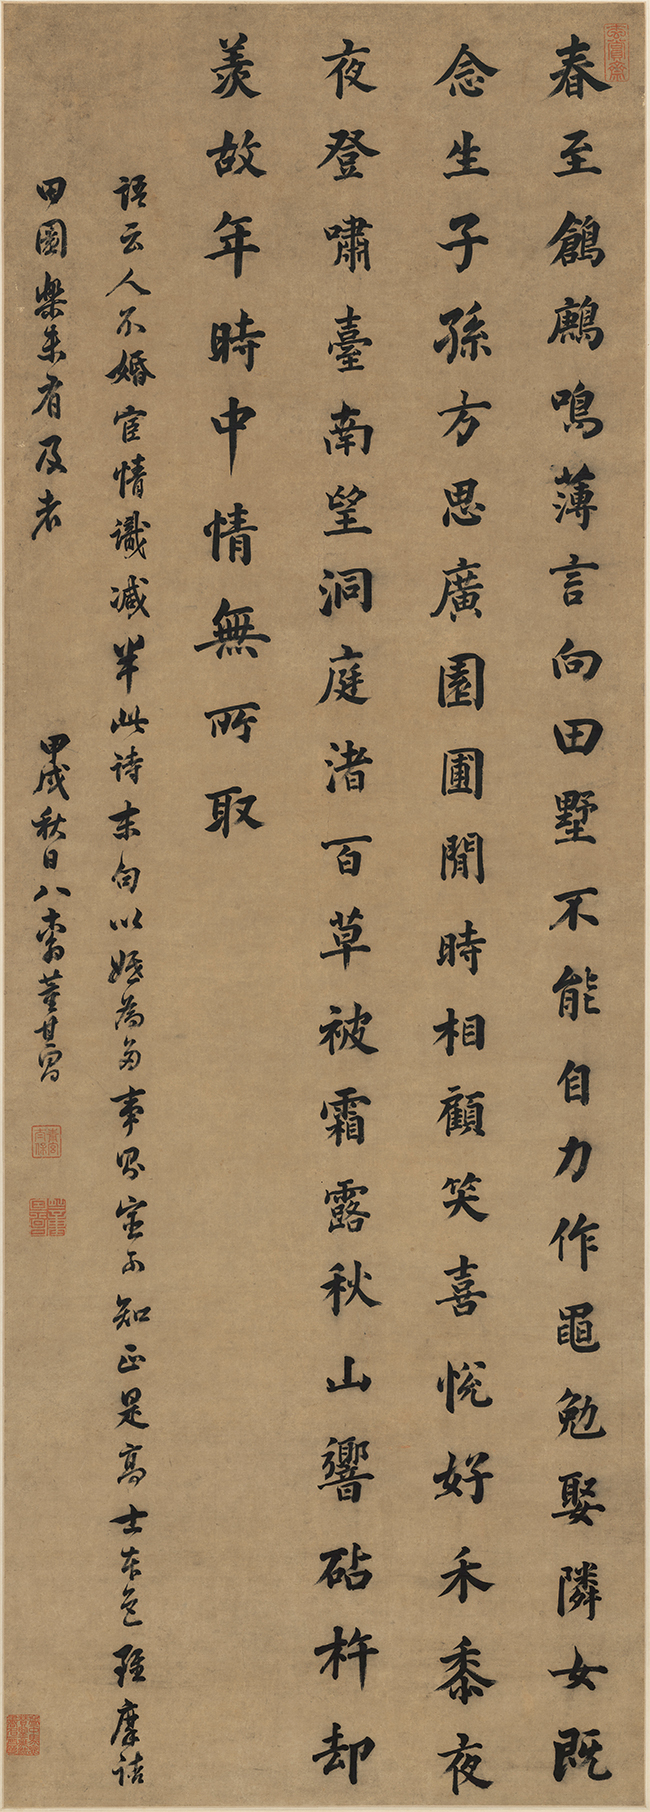 玄賞齋
春至鶬鶊鳴薄言向田墅不能自力作黽勉娶隣女既
念生子孫方思廣園圃閒時相顧笑喜悅好禾黍夜
夜登嘯臺南望洞庭渚百草被霜露秋山響砧杵却
羨故年時中情無所取
語云人不婚宦情識減半此詩末句以婚為多事不知正是高士本色雖摩詰
田園樂未有及者 甲戌秋日八十翁董其昌
青宮太保